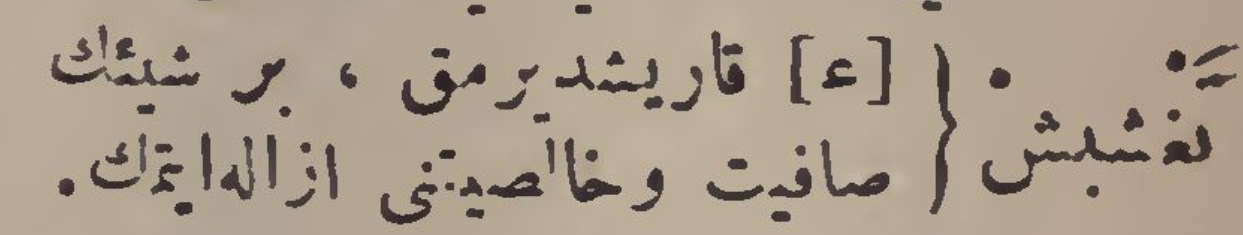 تَغشيش { [ع] قاريشديرمق ، بر شيئك
صافيت وخالصيتنى ازاله ايتمك.